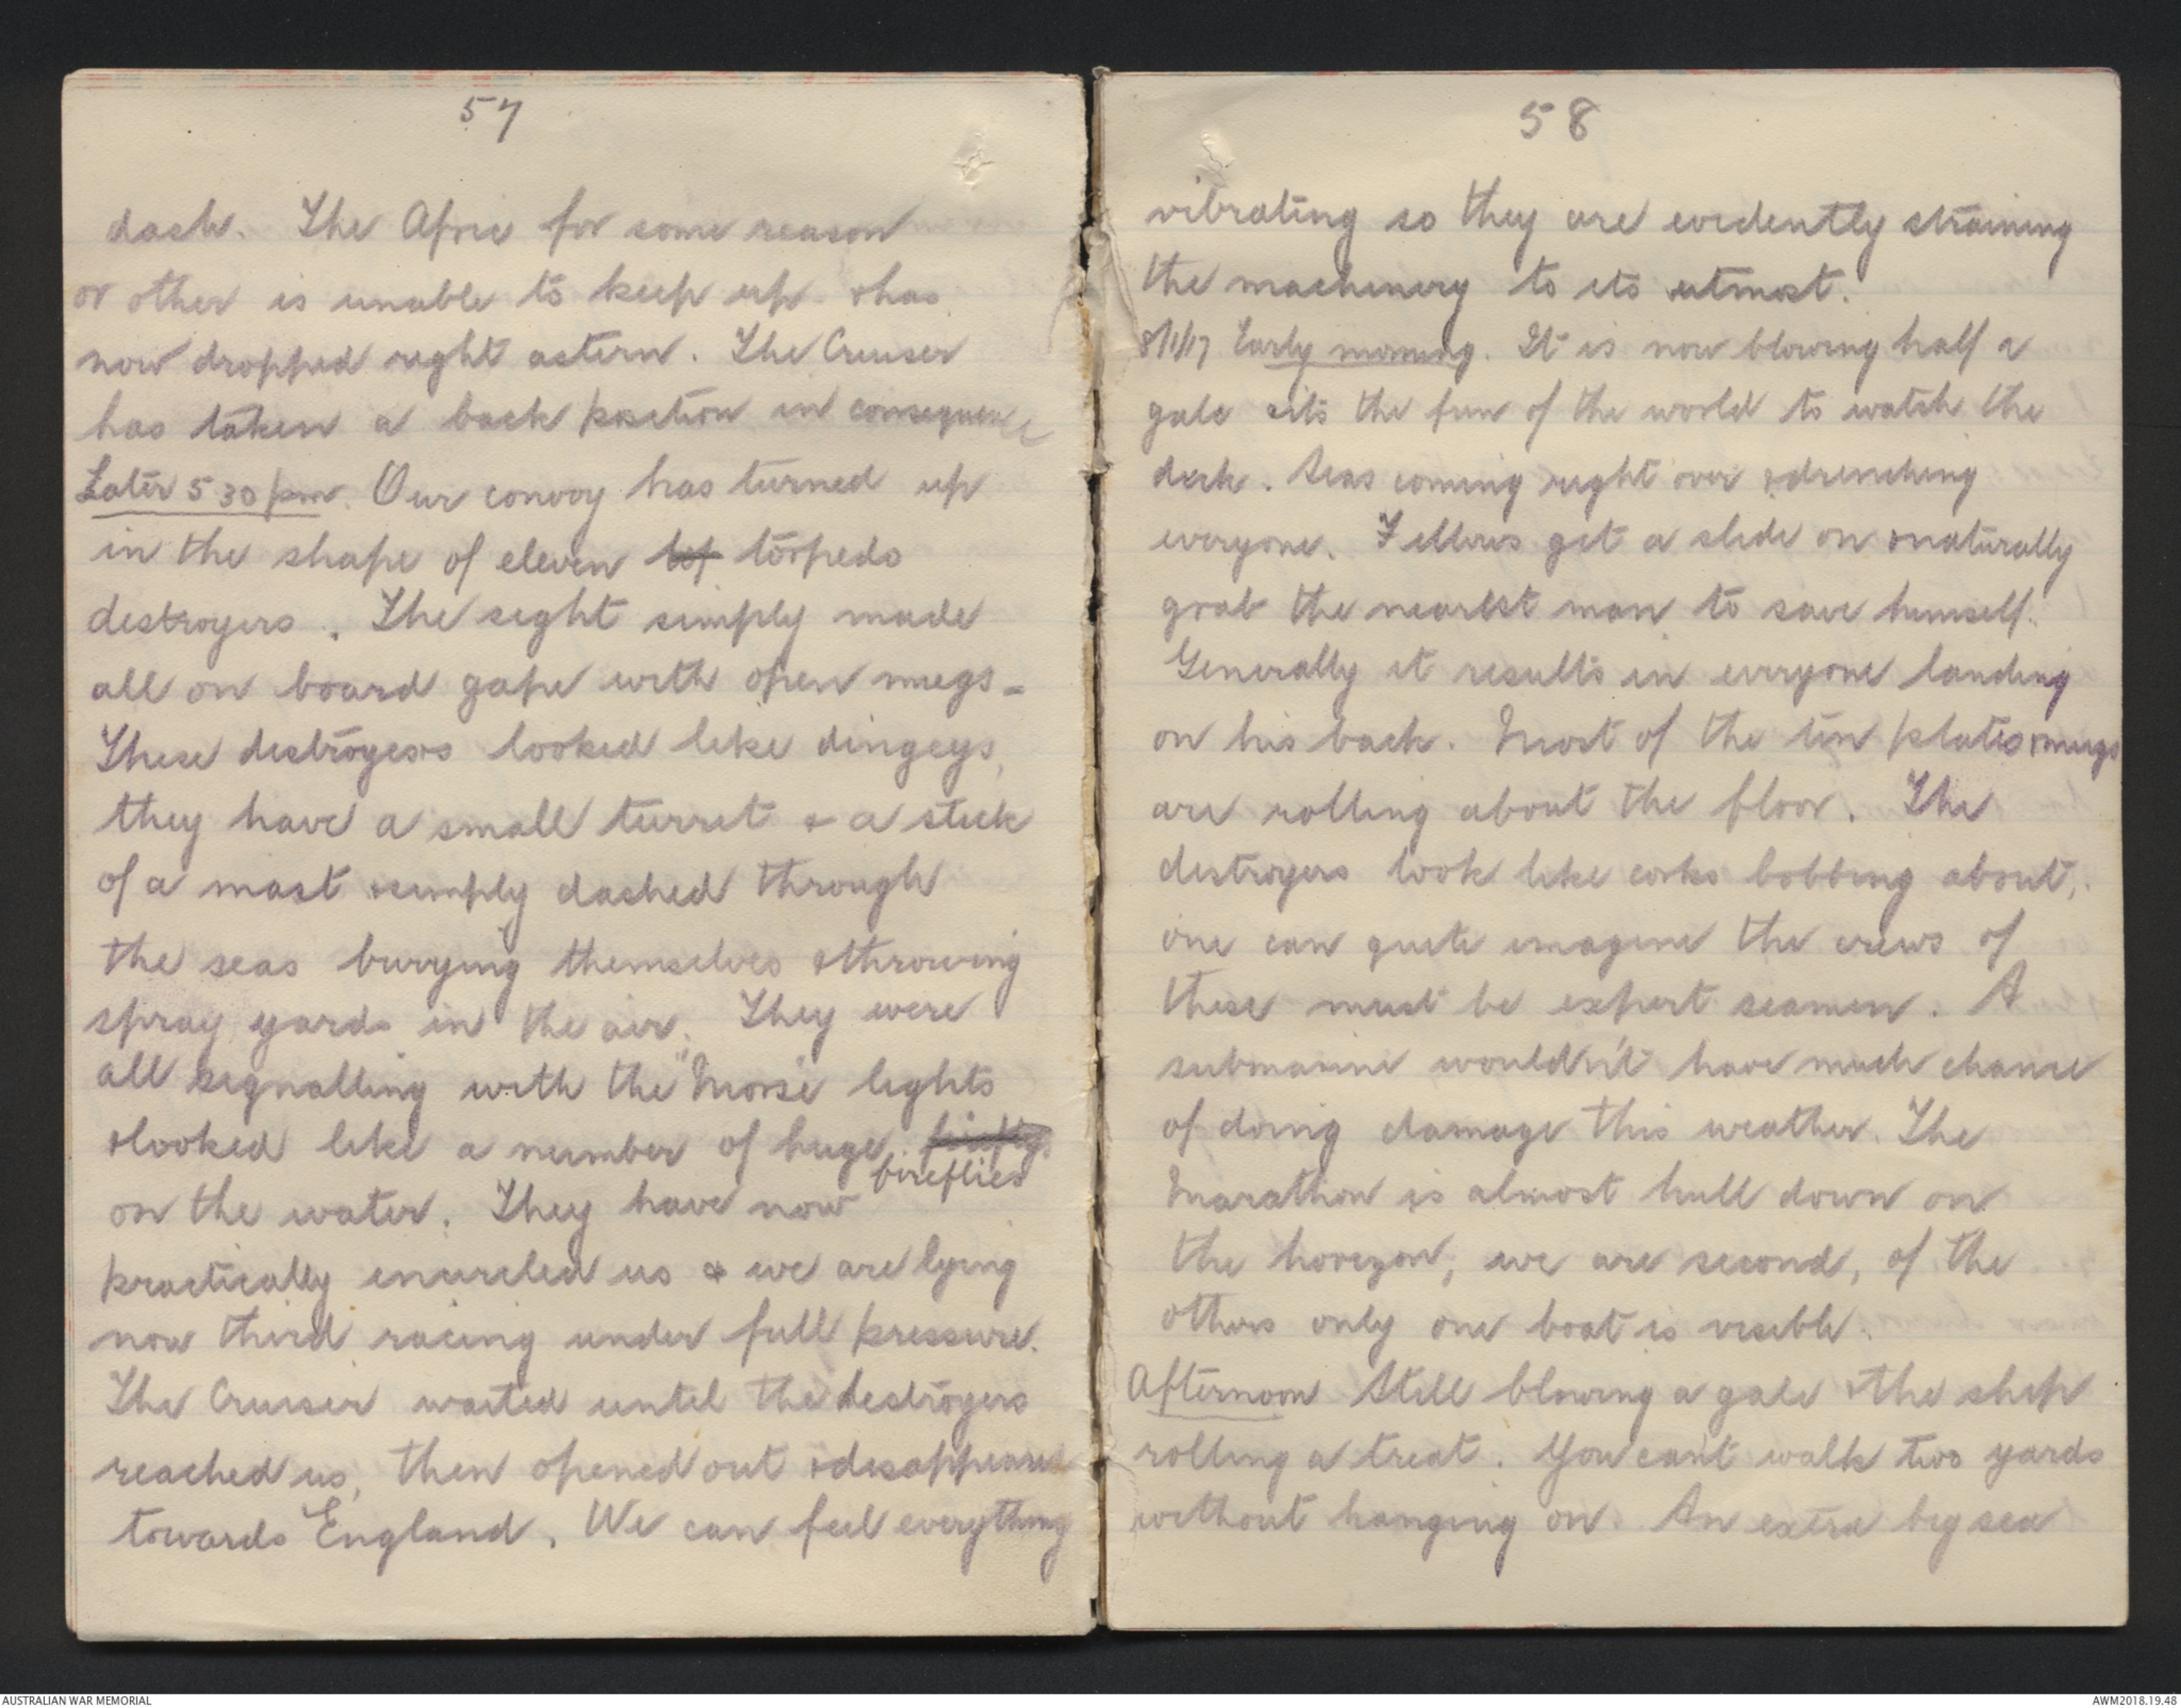 57
dash. The Afric for some reason
or other is unable to keep up & has
now dropped right astern. The Cruiser
has taken a back position in consequence
Later 5 30 pm. Our convoy has turned up
in the shape of eleven tor torpedo
destroyers. The sight simply made
all on board gape with open mugs -
These destroyers looked like dingeys,
they have a small turret & a stick
of a mast & simply dashed through
the seas burying themselves & throwing
spray yards in the air. They were
all signalling with the "Morse lights
& looked like a number of huge
fireflies
on the water. They have now
practically encircled us & we are lying
now third racing under full pressure.
The Cruiser waited until the destroyers
reached us, then opened out & disappeared
towards England. We can feel everything
58
vibrating so they are evidently straining
the machinery to its utmost.
8/1/17 Early morning. It is now blowing half a
gale & its the fun of the world to watch the
deck. Seas coming right over & drenching
everyone. Fellows get a slide on & naturally
grab the nearest man to save himself.
Generally it results in everyone landing
on his back. Most of the tin plates & mugs
are rolling about the floor. The
destroyers look like corks bobbing about,
one can quite imagine the crews of
these must be expert seamen. A
submarine wouldn't have much chance
of doing damage this weather. The
Marathon is almost hull down on
the horizon, we are second, of the
others only one boat is visible.
Afternoon Still blowing a gale & the ship
rolling a treat. You can't walk two yards
without hanging on. An extra big sea
AUSTRALIAN WAR MEMORIAL
AWM2018.19.48